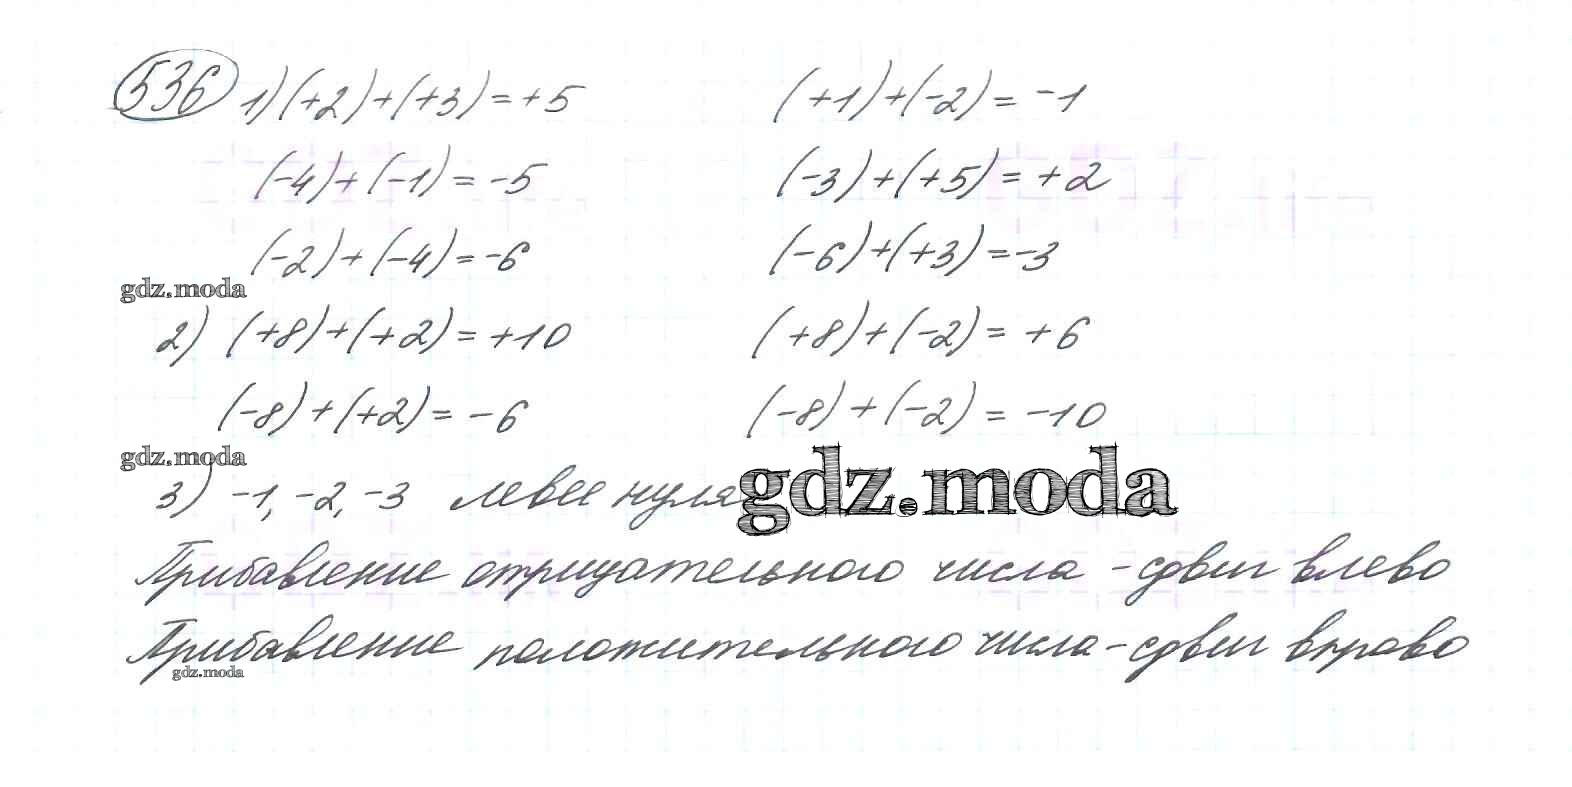 536 1) (+2)+(+3)=+5 (+1)+(-2)=-1
(-4)+(-1)=-5 (-3)+(+5)=+2
(-2)+(-4)=-6 (-6)+(+3)=-3
gdz.moda
2) (+8)+(+2)=+10 (+8)+(-2)=+6
(-8)+(+2)=-6 (-8)+(-2)=-10
gdz.moda
3) -1, -2, -3 левее нуля
gdz.moda
Прибавление отрицательного числа - сдвиг влево
Прибавление положительного числа - сдвиг вправо
gdz.moda